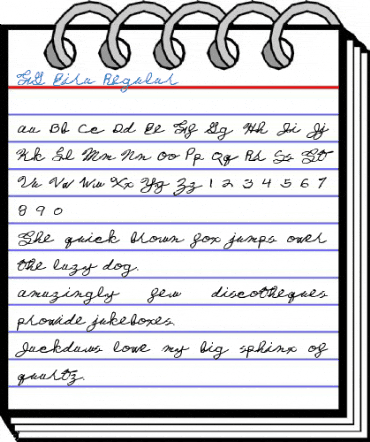 FG Eira Regular
Aa Bb Cc Dd Ee Ff Gg Hh Ii Jj
Kk Ll Mm Nn Oo Pp Qq Rr Ss Tt
Uu Vv Ww Xx Yy Zz 1 2 3 4 5 6 7
8 9 0
The quick brown fox jumps over
the lazy dog.
amazingly few discotheques
provide jukeboxes.
Jackdaws love my big sphinx of
quartz.